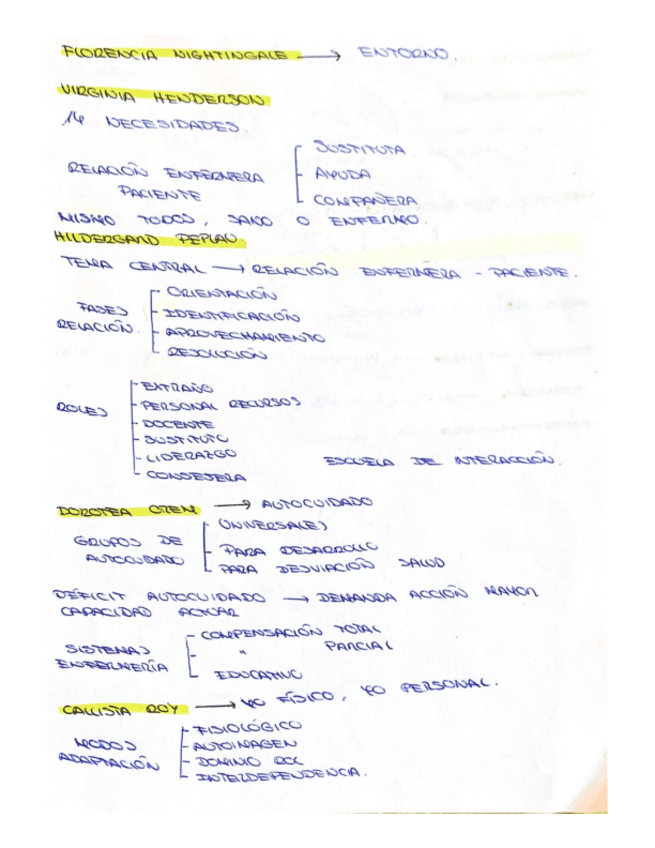 FLORENCIA NIGHTINGALE → ENTORNO.
VIRGINIA HENDERSON
14 NECESIDADES.
RELACIÓN ENFERMERA PACIENTE
SUSTITUTA
AYUDA
COMPAÑERA
MISMO TODOS, SANO O ENFERMO.
HILDERGAND PEPLAU
TEMA CENTRAL → RELACIÓN ENFERMERA - PACIENTE.
FASES RELACIÓN.
ORIENTACIÓN
IDENTIFICACIÓN
APROVECHAMIENTO
RESOLUCIÓN
ROLES
EXTRAÑO
PERSONAL RECURSOS
DOCENTE
SUSTITUTO
LIDERAZGO
CONSEJERA
ESCUELA DE INTERACCIÓN.
DOROTEA OREM → AUTOCUIDADO
GRUPOS DE AUTOCUIDADO
UNIVERSALES
PARA DESARROLLO
PARA DESVIACIÓN SALUD
DÉFICIT AUTOCUIDADO → DEMANDA ACCIÓN MAYOR
CAPACIDAD ACTUAR
SISTEMAS ENFERMERÍA
COMPENSACIÓN TOTAL
" PARCIAL
EDUCATIVO
CALLISTA ROY → YO FÍSICO, YO PERSONAL.
MODOS ADAPTACIÓN
FISIOLÓGICO
AUTOIMAGEN
DOMINIO ROL
INTERDEPENDENCIA.